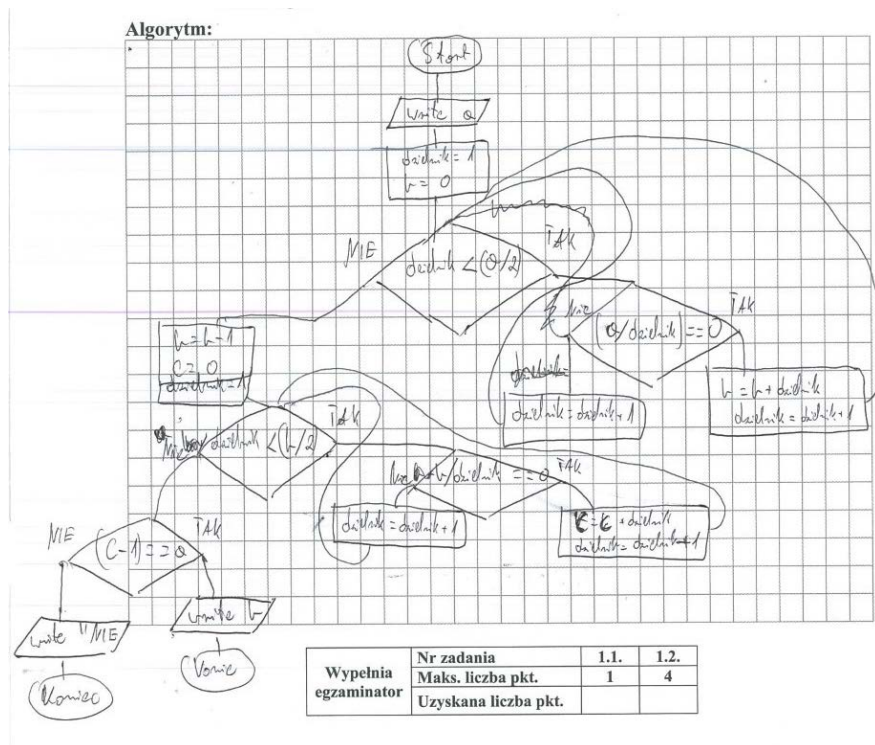 Algorytm:
Start
write a
dzielnik = 1
b = 0
NIE
TAK
dzielnik < (a/2)
Nie
TAK
(a/dzielnik) == 0
b = b - 1
c = 0
dzielnik = 1
dzielnik = dzielnik + 1
b = b + dzielnik
dzielnik = dzielnik + 1
Nie
TAK
dzielnik < (b/2)
Nie
TAK
b/dzielnik == 0
dzielnik = dzielnik + 1
c = c + dzielnik
dzielnik = dzielnik + 1
NIE
TAK
(c-1) == a
write "NIE
write b
Koniec
Koniec
Wypełnia egzaminator
Nr zadania 1.1. 1.2.
Maks. liczba pkt. 1 4
Uzyskana liczba pkt.